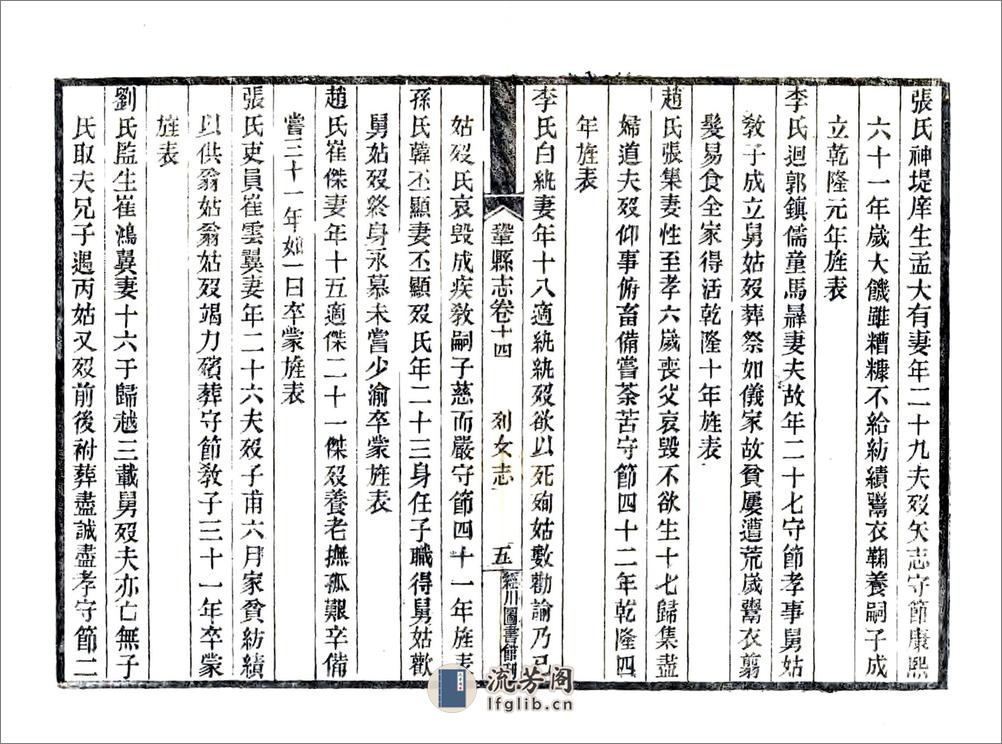 張氏神堤庠生孟大有妻年二十九夫歿矢志守節康熙
六十一年歲大饑雖糟糠不給紡績鬻衣鞠養嗣子成
立乾隆元年旌表
李氏迴郭鎮儒童馬驊妻夫故年二十七守節孝事舅姑
教子成立舅姑歿葬祭如儀家故貧屢遭荒歲鬻衣剪
髮易食全家得活乾隆十年旌表
趙氏張集妻性至孝六歲喪父哀毀不欲生十七歸集盡
婦道夫歿仰事俯畜備嘗荼苦守節四十二年乾隆四
年旌表
李氏白統妻年十八適統統歿欲以死殉姑數勸諭乃已
鞏縣志卷十四
列女志
五
經川圖書館刊
姑歿氏哀毀成疾教嗣子慈而嚴守節四十一年旌表
孫氏韓丕顯妻丕顯歿氏年二十三身任子職得舅姑歡
舅姑歿終身永慕未嘗少渝卒蒙旌表
趙氏崔傑妻年十五適傑二十一傑歿養老撫孤艱辛備
嘗三十一年如一日卒蒙旌表
張氏吏員崔雲翼妻年二十六夫歿子甫六月家貧紡績
以供翁姑翁姑歿竭力殯葬守節教子三十一年卒蒙
旌表
劉氏監生崔鴻翼妻十六于歸越三載舅歿夫亦亡無子
氏取夫兄子遇丙姑又歿前後祔葬盡誠盡孝守節二
流芳閣
lfglib.cn